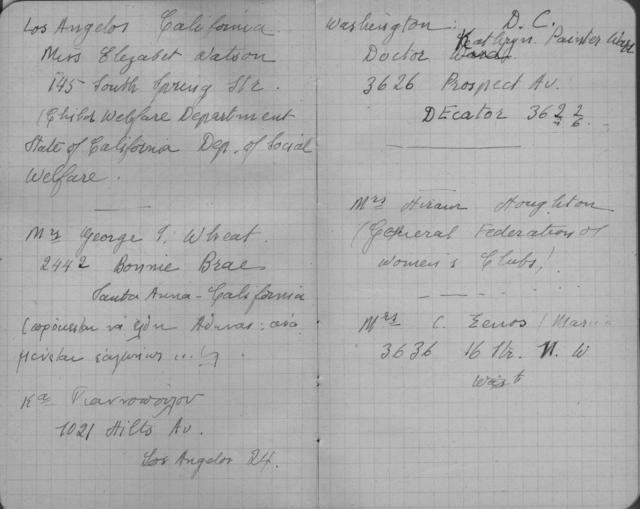 Los Angelos California
Miss Elizabet Watson
145 South Spring Str.
(Child Welfare Department
State of California Dep. of Social
Welfare.
Mrs George J. Wheat.
2442 Bonnie Brae
Santa Anna - California
να έλθη Αθήνας:
Κα Γιαννοπούλου
1021 Hilts Av.
Los Angelos 24.
Washington: D. C.
Kathryn Painter Ward
Doctor
3626 Prospect Av.
DEcator 3622
6.
Mrs Hiram Houghton
(General Federation of
Women's Clubs)
Mrs C. Zenos (Maria
3636 16 Str. N. W
West